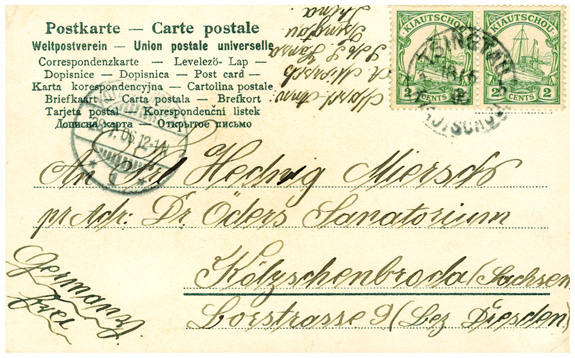 Postkarte — Carte postale
Weltpostverein — Union postale universelle
Correspondenzkarte — Levelező-Lap —
Dopisnice — Dopisnica — Post card —
Karta korespondencyjna — Cartolina postale
Briefkaart — Carta postala — Brefkort
Tarjeta postal — Korespondenční listek
Дописна карта — Открытое письмо
KIAUTSCHOU
2 CENTS 2
KIAUTSCHOU
2 CENTS 2
TSINGTAU
KIAUTSCHOU
Tsingtau
China
An Frl Hedwig Miersch
pr Adr: Dr. Öders Sanatorium
Kötzschenbroda (Sachsen
Borstrasse 9 (bez Dresden)
Germany
frei